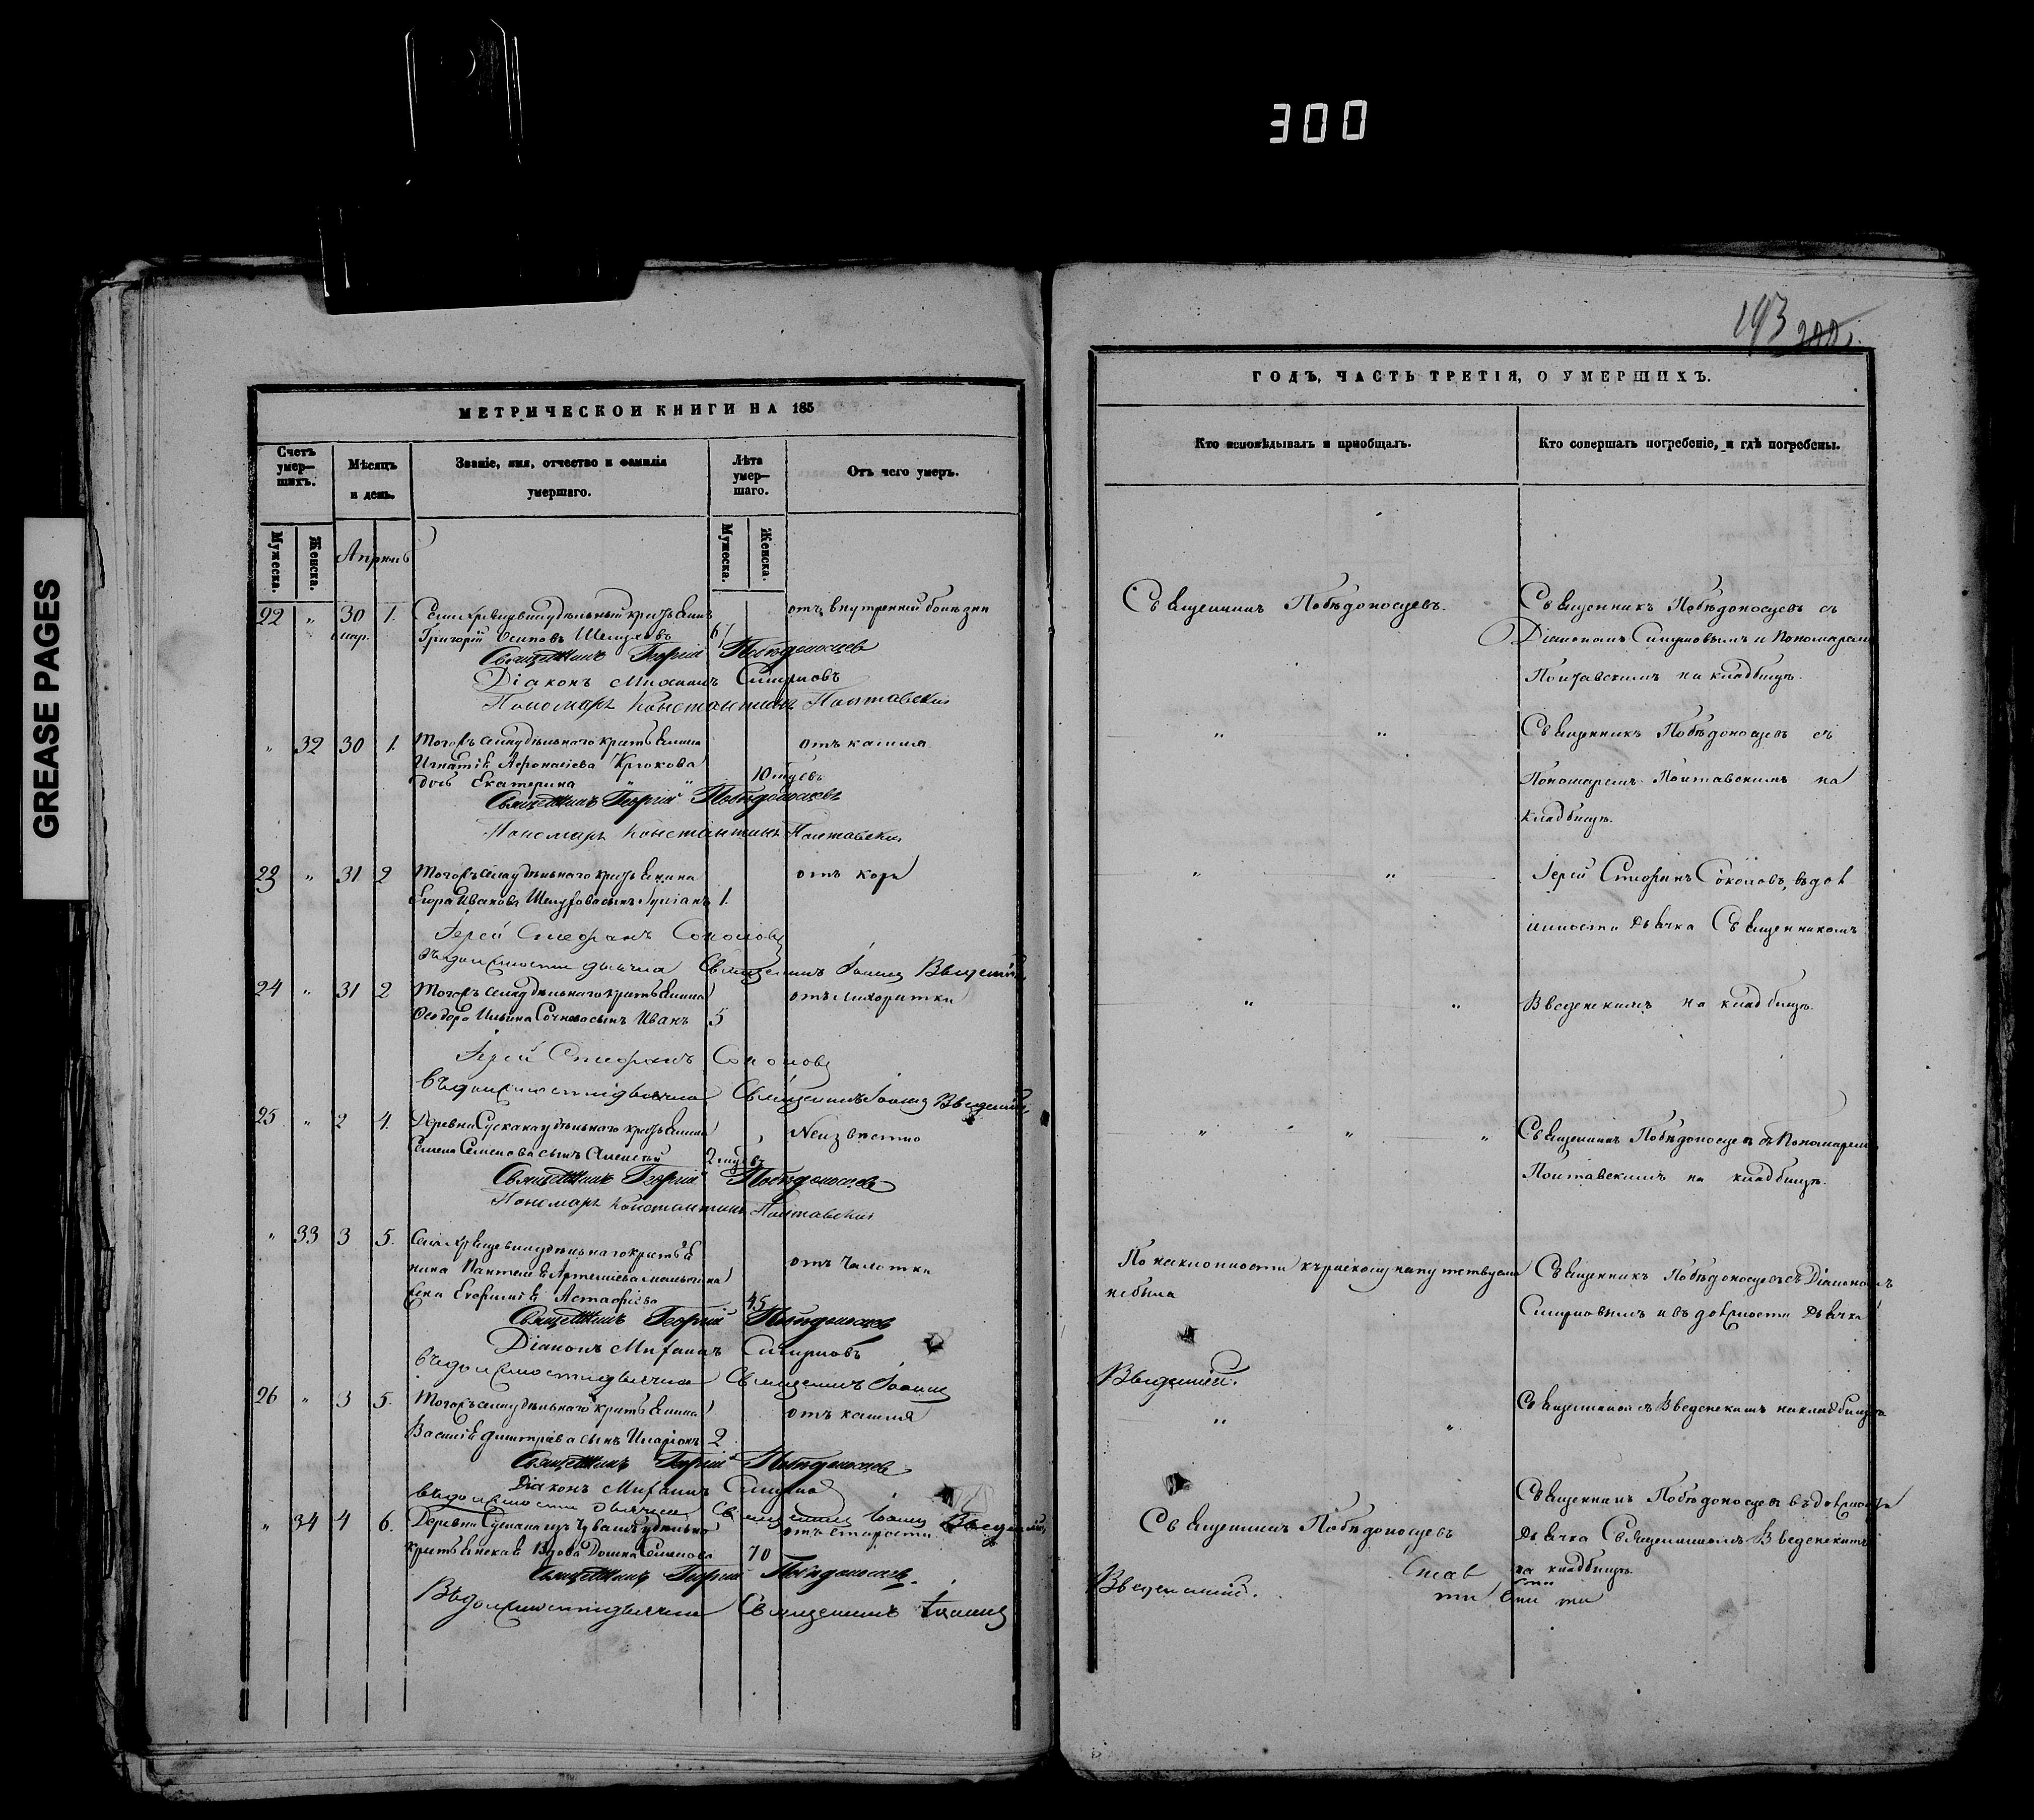 300
GREASE PAGES
193
МЕТРИЧЕСКОЙ КНИГИ НА 185
Счетъ умер—шихъ.
Мѣсяцъ и день.
Званіе, имя, отчество и фамилія умершаго.
Лѣта умер—шаго.
Отъ чего умеръ.
Мужеска.
Женска.
Мужеска.
Женска.
Апрель
22 " 30 мар. 1. удѣльный крестьянинъ
Григорій Осиповъ 67 отъ внутренней болезни
Священникъ Георгій Побѣдоносцев
Діаконъ Михаилъ Смирновъ
Пономарь Константинъ Полтавскій
" 32 30 1. Тогожъ села удѣльнаго крестьянина
Игнатія Афонасіева Крюкова
дочь Екатерина 10 отъ кашля
Священникъ Георгій Побѣдоносцевъ
Пономарь Константинъ Полтавскій
23 " 31 2 Тогожъ села удѣльнаго крестьянина
Егора Иванова сынъ 1. отъ кори
Іерей Стефанъ Соколовъ
въ должности дьячка Священникъ Іоаннъ Введенскій
24 " 31 2 Тогожъ села удѣльнаго крестьянина
Феодора Ильина сынъ Иванъ 5 отъ лихоратки
Іерей Стефанъ Соколовъ
въ должности дьячка Священникъ Іоаннъ Введенскій
25 " 2 4. Деревни удѣльнаго крестьянина
Семена Семенова сынъ Алексѣй 2 Неизвестно
Священникъ Георгій Побѣдоносцев
Пономарь Константинъ Полтавскій
" 33 3 5. удѣльнаго крестья
нина
жена 45 отъ чахотки
Священникъ Георгій Побѣдоносцев
Діаконъ Михаилъ Смирновъ
въ должности дьячка Священникъ Іоаннъ
26 " 3 5. Тогожъ села удѣльнаго крестьянина
Василія Дмитріева сынъ Иларіонъ 2 отъ кашля
Священникъ Георгій Побѣдоносцев
Діаконъ Михаилъ Смирнов
въ должности дьячка Священникъ Іоаннъ Введенскій
" 34 4 6. Деревни изъ чувашъ удѣльна
крестьянская вдова 70 отъ старости
Священникъ Георгій Побѣдоносцев.
Въ должности дьячка Священникъ Іоаннъ
ГОДЪ, ЧАСТЬ ТРЕТІЯ, О УМЕРШИХЪ.
Кто исповѣдывалъ и пріобщалъ.
Кто совершалъ погребеніе, и гдѣ погребены.
Священникъ Побѣдоносцевъ.
Священникъ Побѣдоносцевъ съ
Діакономъ Смирновымъ и Пономаремъ
Полтавскимъ на кладбищѣ.
" "
Священникъ Побѣдоносцевъ съ
Пономаремъ Полтавскимъ на
кладбищѣ.
" "
Іерей Стефанъ Соколовъ, въ дол
жности дьячка Священникомъ
" "
Введенскимъ на кладбищѣ.
" " "
Священникъ Побѣдоносцевъ съ Пономаремъ
Полтавскимъ на кладбищѣ.
По напутствуема
небыла
Священникъ Побѣдоносцевъ съ Діакономъ
Смирновымъ и въ должности дьячка
Введенскій.
" "
Священникомъ Введенскимъ на кладбищѣ
Священникъ Побѣдоносцевъ
Священникъ Побѣдоносцевъ въ должности
дьячка Священникомъ Введенскимъ
на кладбищѣ.
Введенскій.